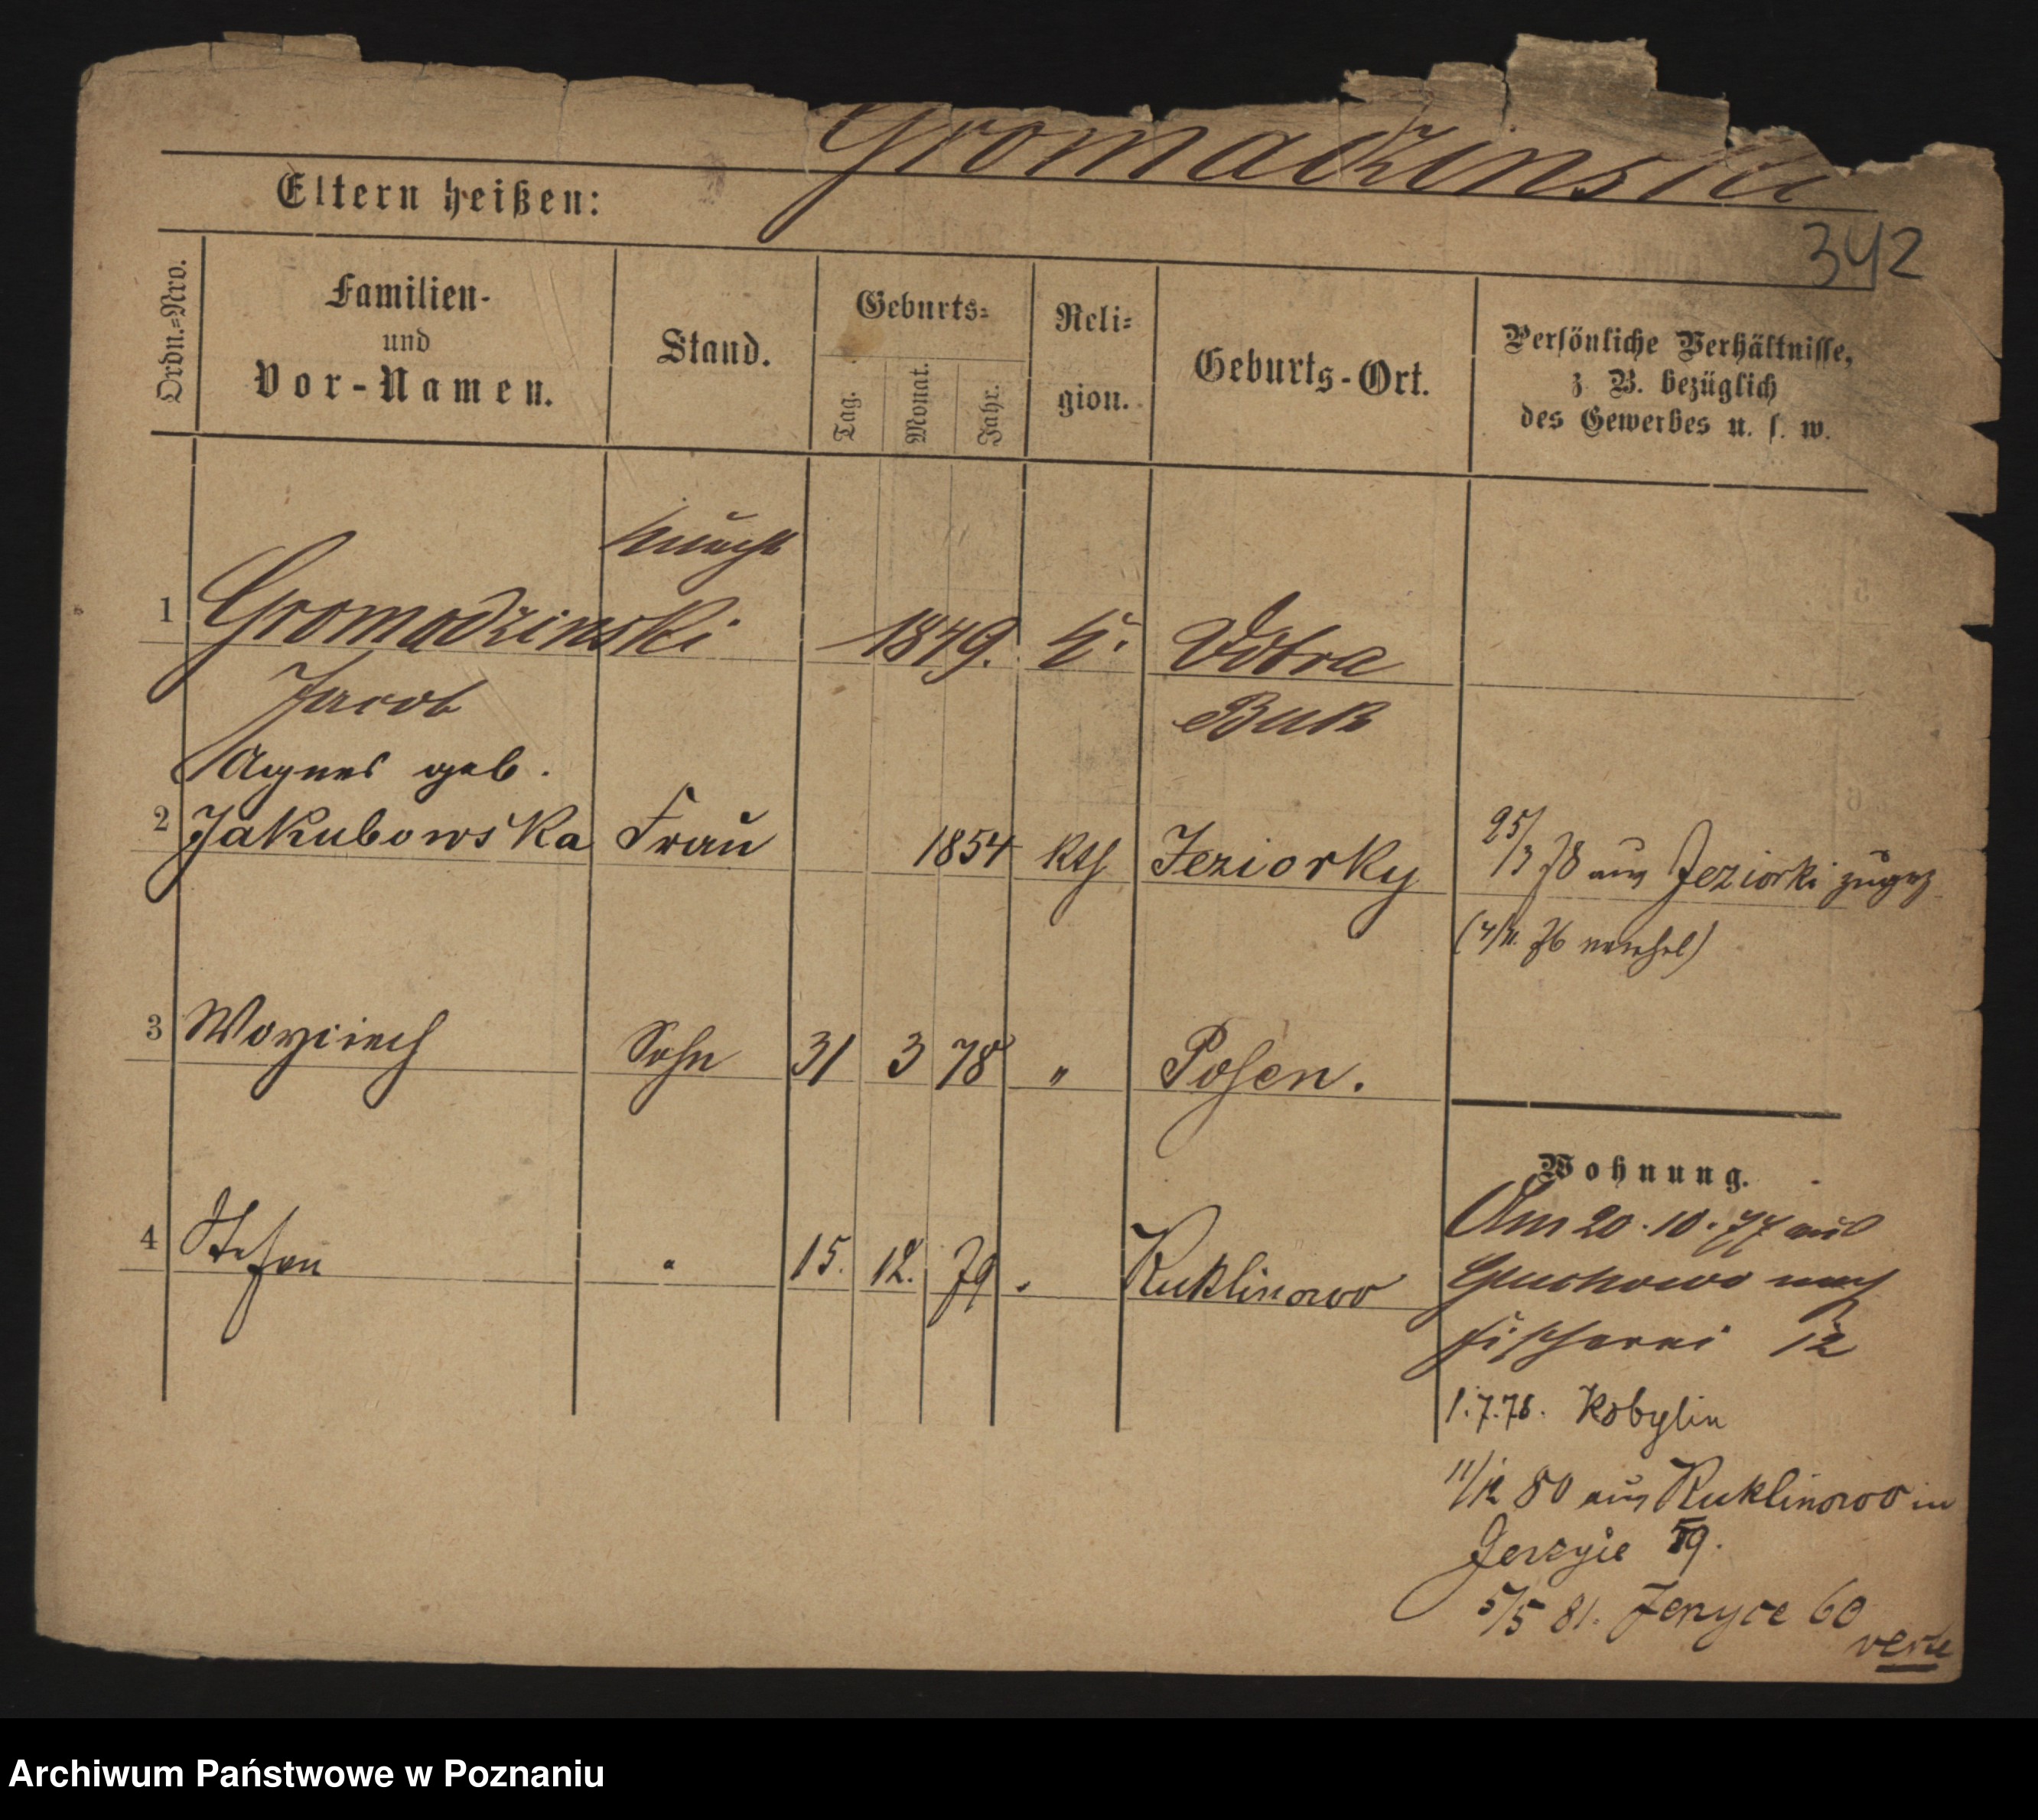 Gromadzinski
Eltern heißen:
342
Ordn.=Nro.
Familien-
und
Vor-Namen.
Stand.
Geburts=
Tag.
Monat.
Jahr.
Reli=
gion.
Geburts-Ort.
Persönliche Verhältnisse,
z. B. bezüglich
des Gewerbes u. s. w.
Knecht
1 Gromadzinski 1849. k.
Jacob
Buk
Agnes geb.
2 Jakubowska Frau 1854 kth Jeziorky
25/3 78 aus Jeziorki zugez
3 Woyciech Sohn 31 3 78 " Posen.
Wohnung.
4 Stefan " 15. 12. 79 " Kuklinowo
Am 20.10.77 aus
Gluchowo nach
Fischerei 12
1.7.78. Kobylin
11/12 80 aus Kuklinowo in
Jerzyce 59.
5/5 81. Jerzyce 60
verte
Archiwum Państwowe w Poznaniu